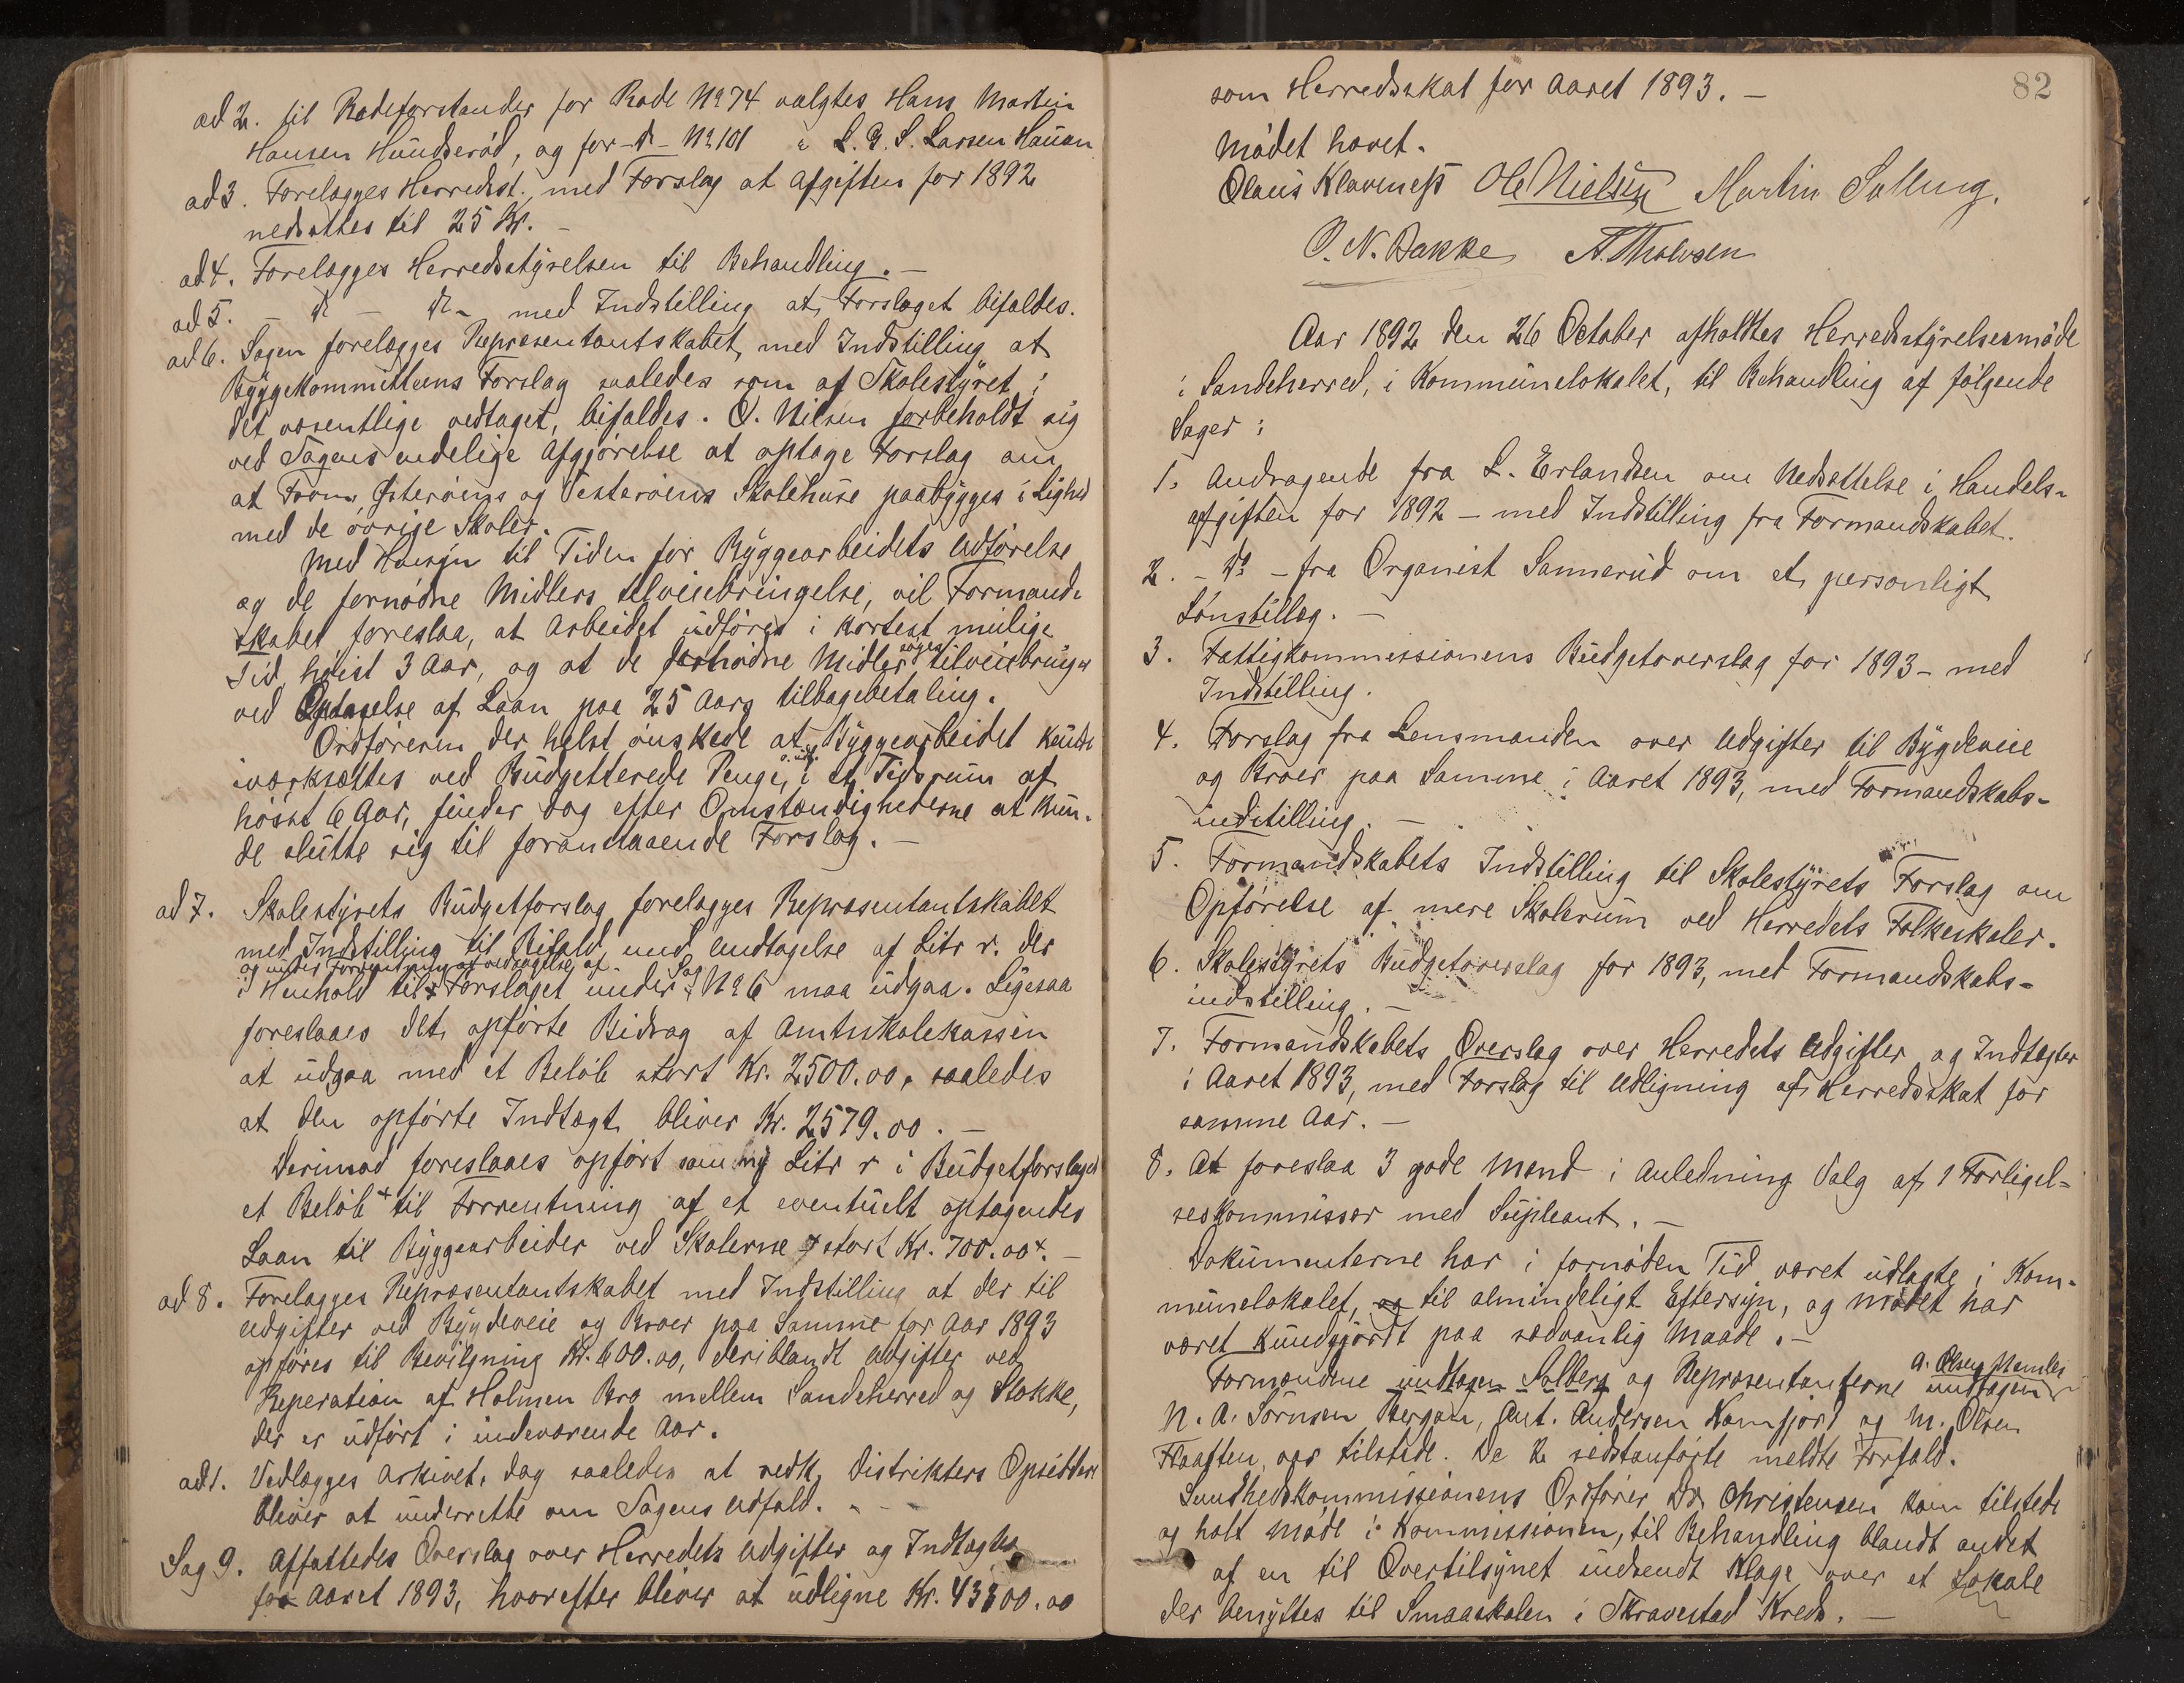 ad 2. til Rodeforstander for Rode No 74 valgtes Hans Martin
Hansen Hundserød, og for - do - No 101 " L. G. S. Larsen Hauan
ad 3. Forelægges Herredsst. med Forslag at Afgiften for 1892
nedsættes til 25 Kr. -
ad 4. Forelægges Herredsstyrelsen til Behandling. -
ad 5. - do - do - med Indstilling at Forslaget bifaldes.
ad 6. Sagen forelægges Repræsentantskabet, med Indstilling at
Byggekommitteens Forslag saaledes som af Skolestyret i
det væsentlige vedtaget, bifaldes. O. Nilsen forbeholdt sig
ved Sagens endelige Afgjørelse at optage Forslag om
at Framn. Østerøens og Vesterøens Skolehuse paabygges i Lighed
med de øvrige Skoler.
Med Hensyn til Tiden for Byggearbeidets Udførelse
og de fornødne Midlers tilveiebringelse, vil Formand-
skabet foreslaa, at Arbeidet udføres i kortest mulige
Tid, høist 3 Aar, og at de fornødne Midler søges tilveiebringes
ved Optagelse af Laan paa 25 Aars tilbagebetaling.
Ordføreren der helst ønskede at Byggearbeidet kunde
iværksættes ved Budgetterede Penge, i et Tidsrum af
høist 6 Aar, finder dog efter Omstændighederne at kun-
de slutte sig til foranstaaende Forslag. -
ad 7. Skolestyrets Budgetforslag forelægges Repræsentantskabet
med Indstilling til Bifald med Undtagelse af Litr r. der
og under Forudsætning af vedtagelse af
i Henhold til Forslaget under Sag No 6 maa udgaa. Ligesaa
foreslaaes det opførte Bidrag af Amtsskolekassen
at udgaa med et Beløb stort Kr. 2500.00, saaledes
at den opførte Indtægt bliver Kr. 2579.00. -
Derimod foreslaaes opført som ny Litr r i Budgetforslaget
et Beløb x til Forrentning af et eventuelt optagendes
Laan til Byggearbeider ved Skolerne x stort Kr. 700.00 x. -
ad 8. Forelægges Repræsentantskabet med Indstilling at der til
Udgifter ved Bygdeveie og Broer paa Samme for Aar 1893
opføres til Bevilgning Kr. 600.00, deriblandt Udgifter ved
Reperation af Holmen Bro mellem Sandeherred og Stokke,
der er udført i indeværende Aar.
ad 1. Vedlægges Arkivet, dog saaledes at vedk. Distrikters Opsiddere
bliver at underrette om Sagens Udfald. -
Sag 9. Affattedes Overslag over Herredets Udgifter og Indtægter
for Aaret 1893, hvorefter bliver at udligne Kr. 43800.00
82
som Herredsskat for Aaret 1893. -
Mødet hævet.
Olaus Klaveness Ole Nielsen Martin Solberg.
O. N. Bakke A. Tholvsen
Aar 1892 den 26 October afholdtes Herredsstyrelsesmøde
i Sandeherred, i Kommunelokalet, til Behandling af følgende
Sager:
1. Andragende fra L. Erlandsen om Nedsættelse i Handels-
afgiften for 1892 - med Indstilling fra Formandskabet.
2. - do - fra Organist Sannerud om et personligt
Lønstillæg. -
3. Fattigkommissionens Budgetoverslag for 1893 - med
Indstilling.
4. Forslag fra Lensmanden over Udgifter til Bygdeveie
og Broer paa Samme i Aaret 1893, med Formandskabs-
indstilling. -
5. Formandskabets Indstilling til Skolestyrets Forslag om
Opførelse af mere Skolerum ved Herredets Folkeskoler.
6. Skolestyrets Budgetoverslag for 1893, med Formandskabs-
indstilling. -
7. Formandskabets Overslag over Herredets Udgifter og Indtægter
i Aaret 1893, med Forslag til Udligning af Herredsskat for
samme Aar. -
8. At foreslaa 3 gode Mænd i Anledning Valg af 1 Forligel-
seskommissær med Supleant. -
Dokumenterne har i fornøden Tid været udlagte i Kom-
munelokalet, og til almindeligt Eftersyn, og Mødet har
været kundgjordt paa sædvanlig Maade. -
Formændene undtagen Solberg og Repræsentanterne undtagen A. Olsen
N. A. Sørnsen Bergan, Ant. Andersen Kamfjord og M. Olsen
Flaatten, var tilstede. De 2 sidstanførte meldte Forfald.
Sundhedskommissionens Ordfører Dr. Christensen kom tilstede
og holt Møde i Kommissionen, til Behandling blandt andet
af en til Overtilsynet indsendt Klage over et Lokale
der benyttes til Smaaskolen i Skravestad Kreds. -